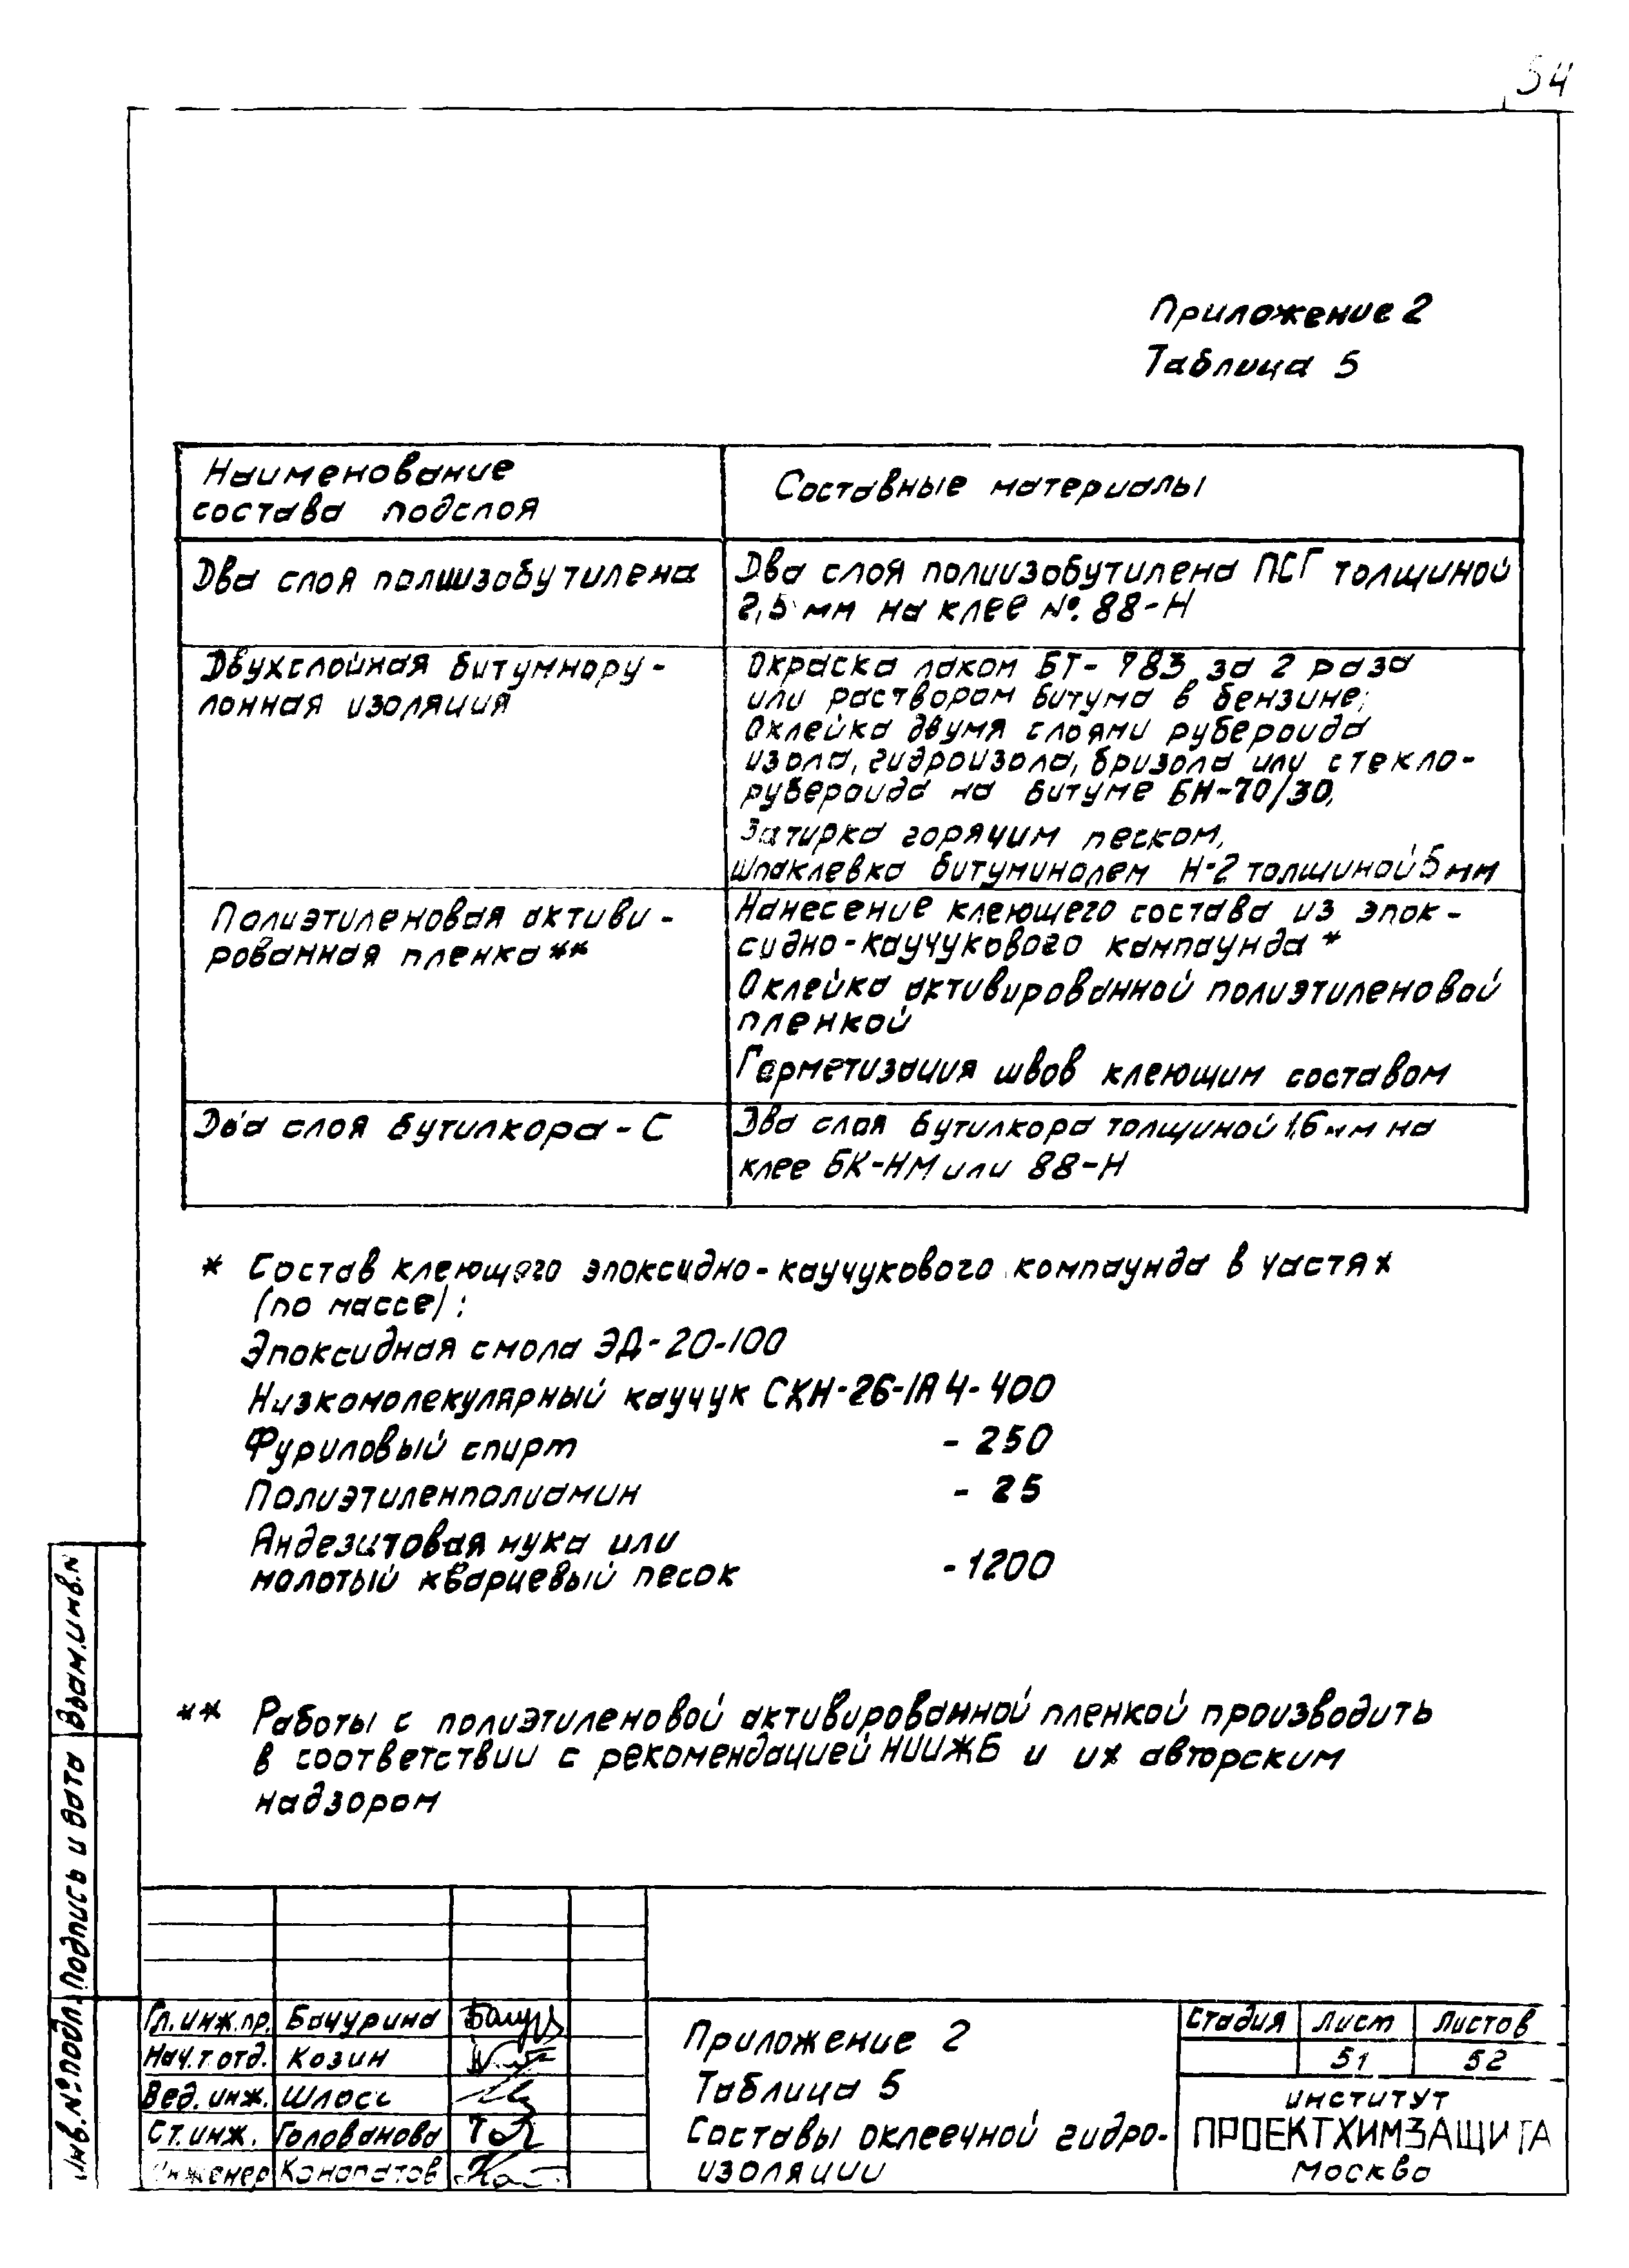 54
Приложение 2
Таблица 5
Наименование
состава подслоя
Составные материалы
Два слоя полиизобутилена
Два слоя полиизобутилена ПСГ толщиной
2,5 мм на клее №. 88-Н
Двухслойная битумнору-
лонная изоляция
Окраска лаком БТ-783 за 2 раза
или раствором битума в бензине;
Оклейка двумя слоями рубероида
изола, гидроизола, бризола или стекло-
рубероида на битуме БН-70/30,
Затирка горячим песком,
Шпаклевка битуминолем Н-2 толщиной 5 мм
Полиэтиленовая активи-
рованная пленка**
Нанесение клеющего состава из эпок-
сидно-каучукового компаунда*
Оклейка активированной полиэтиленовой
пленкой
Герметизация швов клеющим составом
Два слоя бутилкора-С
Два слоя бутилкора толщиной 1,6 мм на
клее БК-НМ или 88-Н
* Состав клеющего эпоксидно-каучукового компаунда в частях
(по массе):
Эпоксидная смола ЭД-20-100
Низкомолекулярный каучук СКН-26-1А 4-400
Фуриловый спирт - 250
Полиэтиленполиамин - 25
Андезитовая мука или
молотый кварцевый песок - 1200
** Работы с полиэтиленовой активированной пленкой производить
в соответствии с рекомендацией НИИЖБ и их авторским
надзором
Взам.инв.N
Подпись и дата
Инв.№подл.
Гл.инж.пр. Бачурина
Нач.т.отд. Козин
Вед.инж. Шлосс
Ст.инж. Голованова
Инженер Конопатов
Приложение 2
Таблица 5
Составы оклеечной гидро-
изоляции
Стадия Лист Листов
51 52
институт
ПРОЕКТХИМЗАЩИТА
Москва